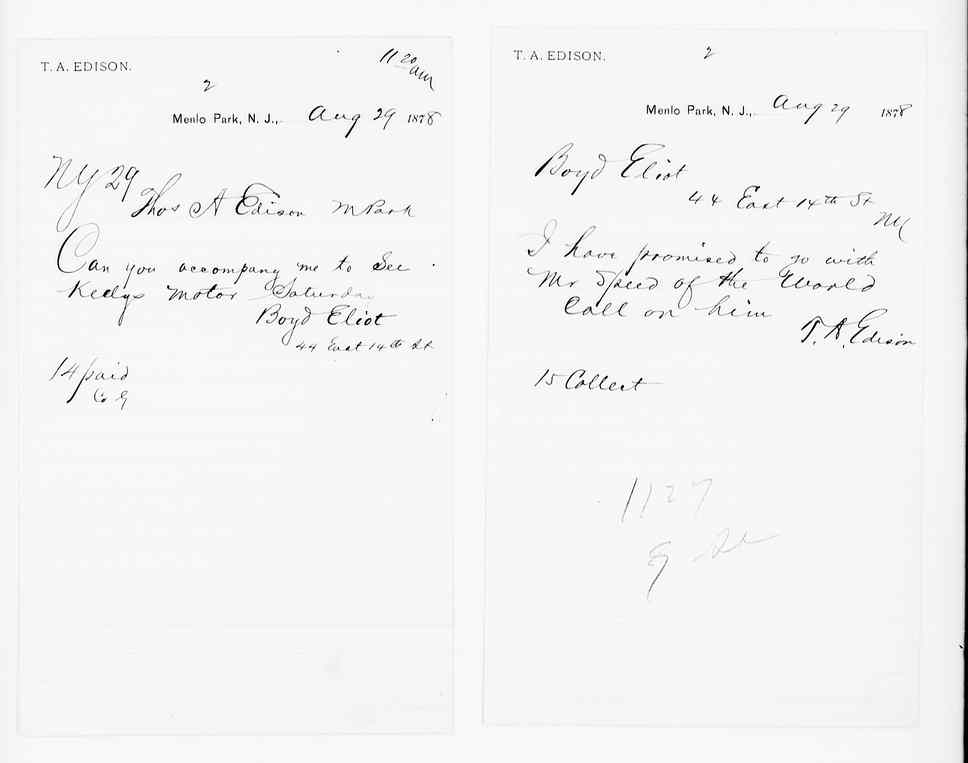 T. A. EDISON.
11 20 am
2
Menlo Park, N. J., Aug 29 1878
NY 29
Thos A Edison M Park
Can you accompany me to See
Keelys motor Saturday
Boyd Eliot
44 East 14th St
14 paid
T. A. EDISON.
2
Menlo Park, N. J., Aug 29 1878
Boyd Eliot
44 East 14th St
NY
I have promised to go with
Mr Speed of the World
Call on him
T. A. Edison
15 Collect
1127